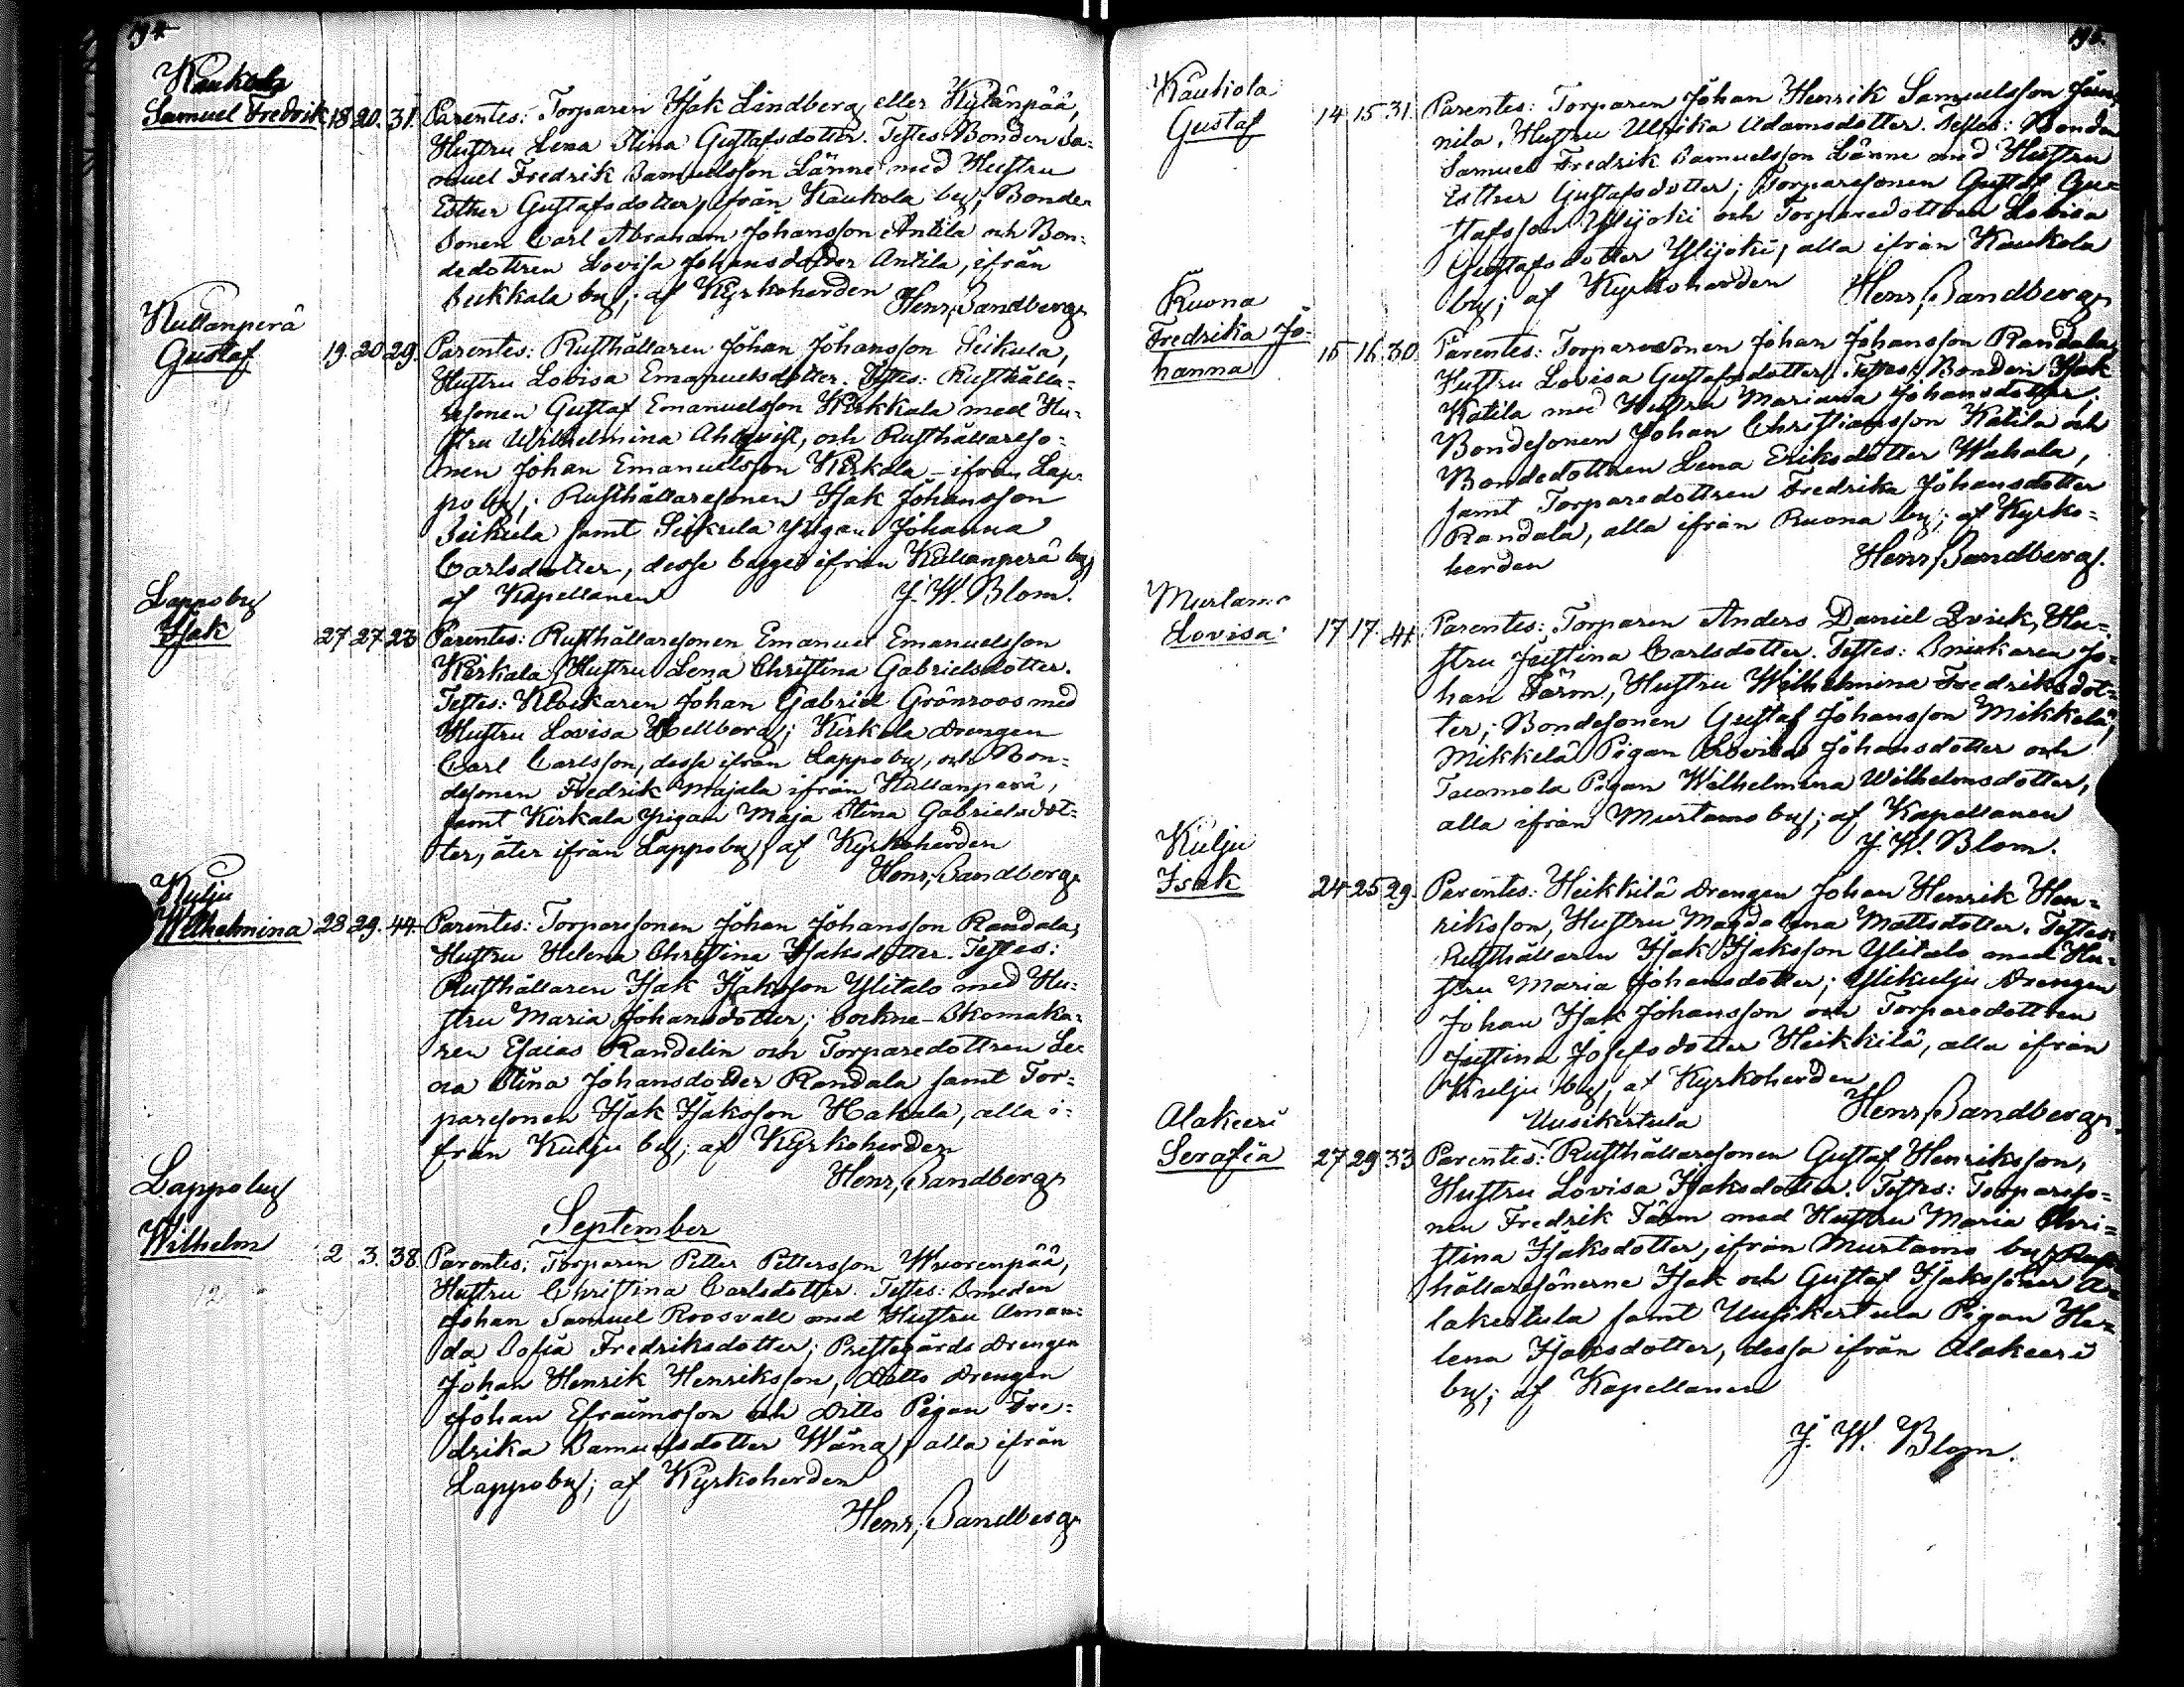 194
Kaukola
Samuel Fredrik 18 20. 31. Parentes: Torparen Isak Lindberg eller Kylänpää,
Hustru Lena Stina Gustafsdotter. Testes: Bonden Sa=
muel Fredrik Samuelsson Länne med Hustru
Esther Gustafsdotter, ifrån Kaukola by; Bonde
Sonen Carl Abraham Johansson Antila och Bon=
dedottren Lovisa Johansdotter Antila, ifrån
Seukkala by; af Kyrkoherden
Henr, Sandberg
Kullanperä
Gustaf 19. 20 29. Parentes: Rusthållaren Johan Johansson Seikula,
Hustru Lovisa Emanuelsdotter. Testes: Rusthålla=
resonen Gustaf Emanuelsson Kirkkala med Hu=
stru Wilhelmina Ahlqvist, och Rusthållareso=
nen Johan Emanuelsson Kirkala – ifrån Lap=
po by; Rusthållaresonen Isak Johansson
Seikula samt Seikula Pigan Johanna
Carlsdotter, desse begge ifrån Kullanperä by,
af Kapellanen J. W. Blom.
Lappo by
Isak 27 27 23 Parentes: Rusthållaresonen Emanuel Emanuelsson
Kirkala, Hustru Lena Christina Gabrielsdotter.
Testes: Klockaren Johan Gabriel Grönroos med
Hustru Lovisa Hellberg; Kirkala Drengen
Carl Carlsson, desse ifrån Lappo by, och Bon=
desonen Fredrik Majala ifrån Kullanperä,
samt Kirkala Pigan Maja Stina Gabrielsdot=
ter, åter ifrån Lappo by, af Kyrkoherden
Henr, Sandberg
Kulju
Wilhelmina 28 29. 44 Parentes: Torparesonen Johan Johansson Randala,
Hustru Helena Christina Isaksdotter. Testes:
Rusthållaren Isak Isaksson Ylitalo med Hu=
stru Maria Johansdotter; Sockne-Skomaka=
ren Esaias Randelin och Torparedottren Le=
na Stina Johansdotter Randala samt Tor=
paresonen Isak Isaksson Hakala, alla i=
från Kulju by; af Kyrkoherden
Henr, Sandberg
September
Lappo by
Wilhelm 2 3. 38. Parentes: Torparen Petter Pettersson Wuorenpää,
Hustru Christina Carlsdotter. Testes: Smeden
Johan Samuel Roosvall med Hustru Aman=
da Sofia Fredriksdotter; Prestegårds Drengen
Johan Henrik Henriksson, Ditto Drengen
Johan Efraimsson och Ditto Pigan Fre=
drika Samuelsdotter Wäna, alla ifrån
Lappo by; af Kyrkoherden
Henr, Sandberg
195.
Kautiola
Gustaf 14 15 31. Parentes: Torparen Johan Henrik Samuelsson
nila, Hustru Ulrika Adamsdotter. Testes: Bonden
Samuel Fredrik Samuelsson Länne med Hustru
Esther Gustafsdotter; Torparesonen Gustaf Gu=
stafsson Ylijoki och Torparedottren Lovisa
Gustafsdotter Ylijoki, alla ifrån Kaukola
by; af Kyrkoherden Henr, Sandberg
Ruona
Fredrika Jo=
hanna 15 16. 30. Parentes: Torparesonen Johan Johansson Randala,
Hustru Lovisa Gustafsdotter. Testes: Bonden Isak
Katila med Hustru Mariana Johansdotter;
Bondesonen Johan Christiansson Katila och
Bondedottren Lena Eriksdotter Wahala,
samt Torparedottren Fredrika Johansdotter
Randala, alla ifrån Ruona by; af Kyrko=
herden Henr, Sandberg.
Murtamo
Lovisa 17 17. 41 Parentes: Torparen Anders Daniel Qvick, Hu=
stru Justina Carlsdotter. Testes: Snickaren Jo=
han Färm, Hustru Wilhelmina Fredriksdot=
ter; Bondesonen Gustaf Johansson Mikkelä;
Mikkelä Pigan Lovisa Johansdotter och
Tacomola Pigan Wilhelmina Wilhelmsdotter,
alla ifrån Murtamo by; af Kapellanen
J. W. Blom.
Kulju
Isak 24 25 29. Parentes: Heikkilä Drengen Johan Henrik Hen=
riksson, Hustru Magdalena Mattsdotter. Testes:
Rusthållaren Isak Isaksson Ylitalo med Hu=
stru Maria Johansdotter; Ylikulju Drengen
Johan Isak Johansson och Torparedottren
Justina Josefsdotter Heikkilä, alla ifrån
Kulju by, af Kyrkoherden
Henr, Sandberg.
Alakeeri
Uusikertula
Serafia 27 29. 33 Parentes: Rusthållaresonen Gustaf Henriksson,
Hustru Lovisa Isaksdotter. Testes: Torpareso=
nen Fredrik Färm med Hustru Maria Chri=
stina Isaksdotter, ifrån Murtamo by; Rust
hållaresönerne Isak och Gustaf Isakssöner A=
lakertula samt Uusikertula Pigan He=
lena Isaksdotter, dessa ifrån Alakeeri
by; af Kapellanen
J. W. Blom.